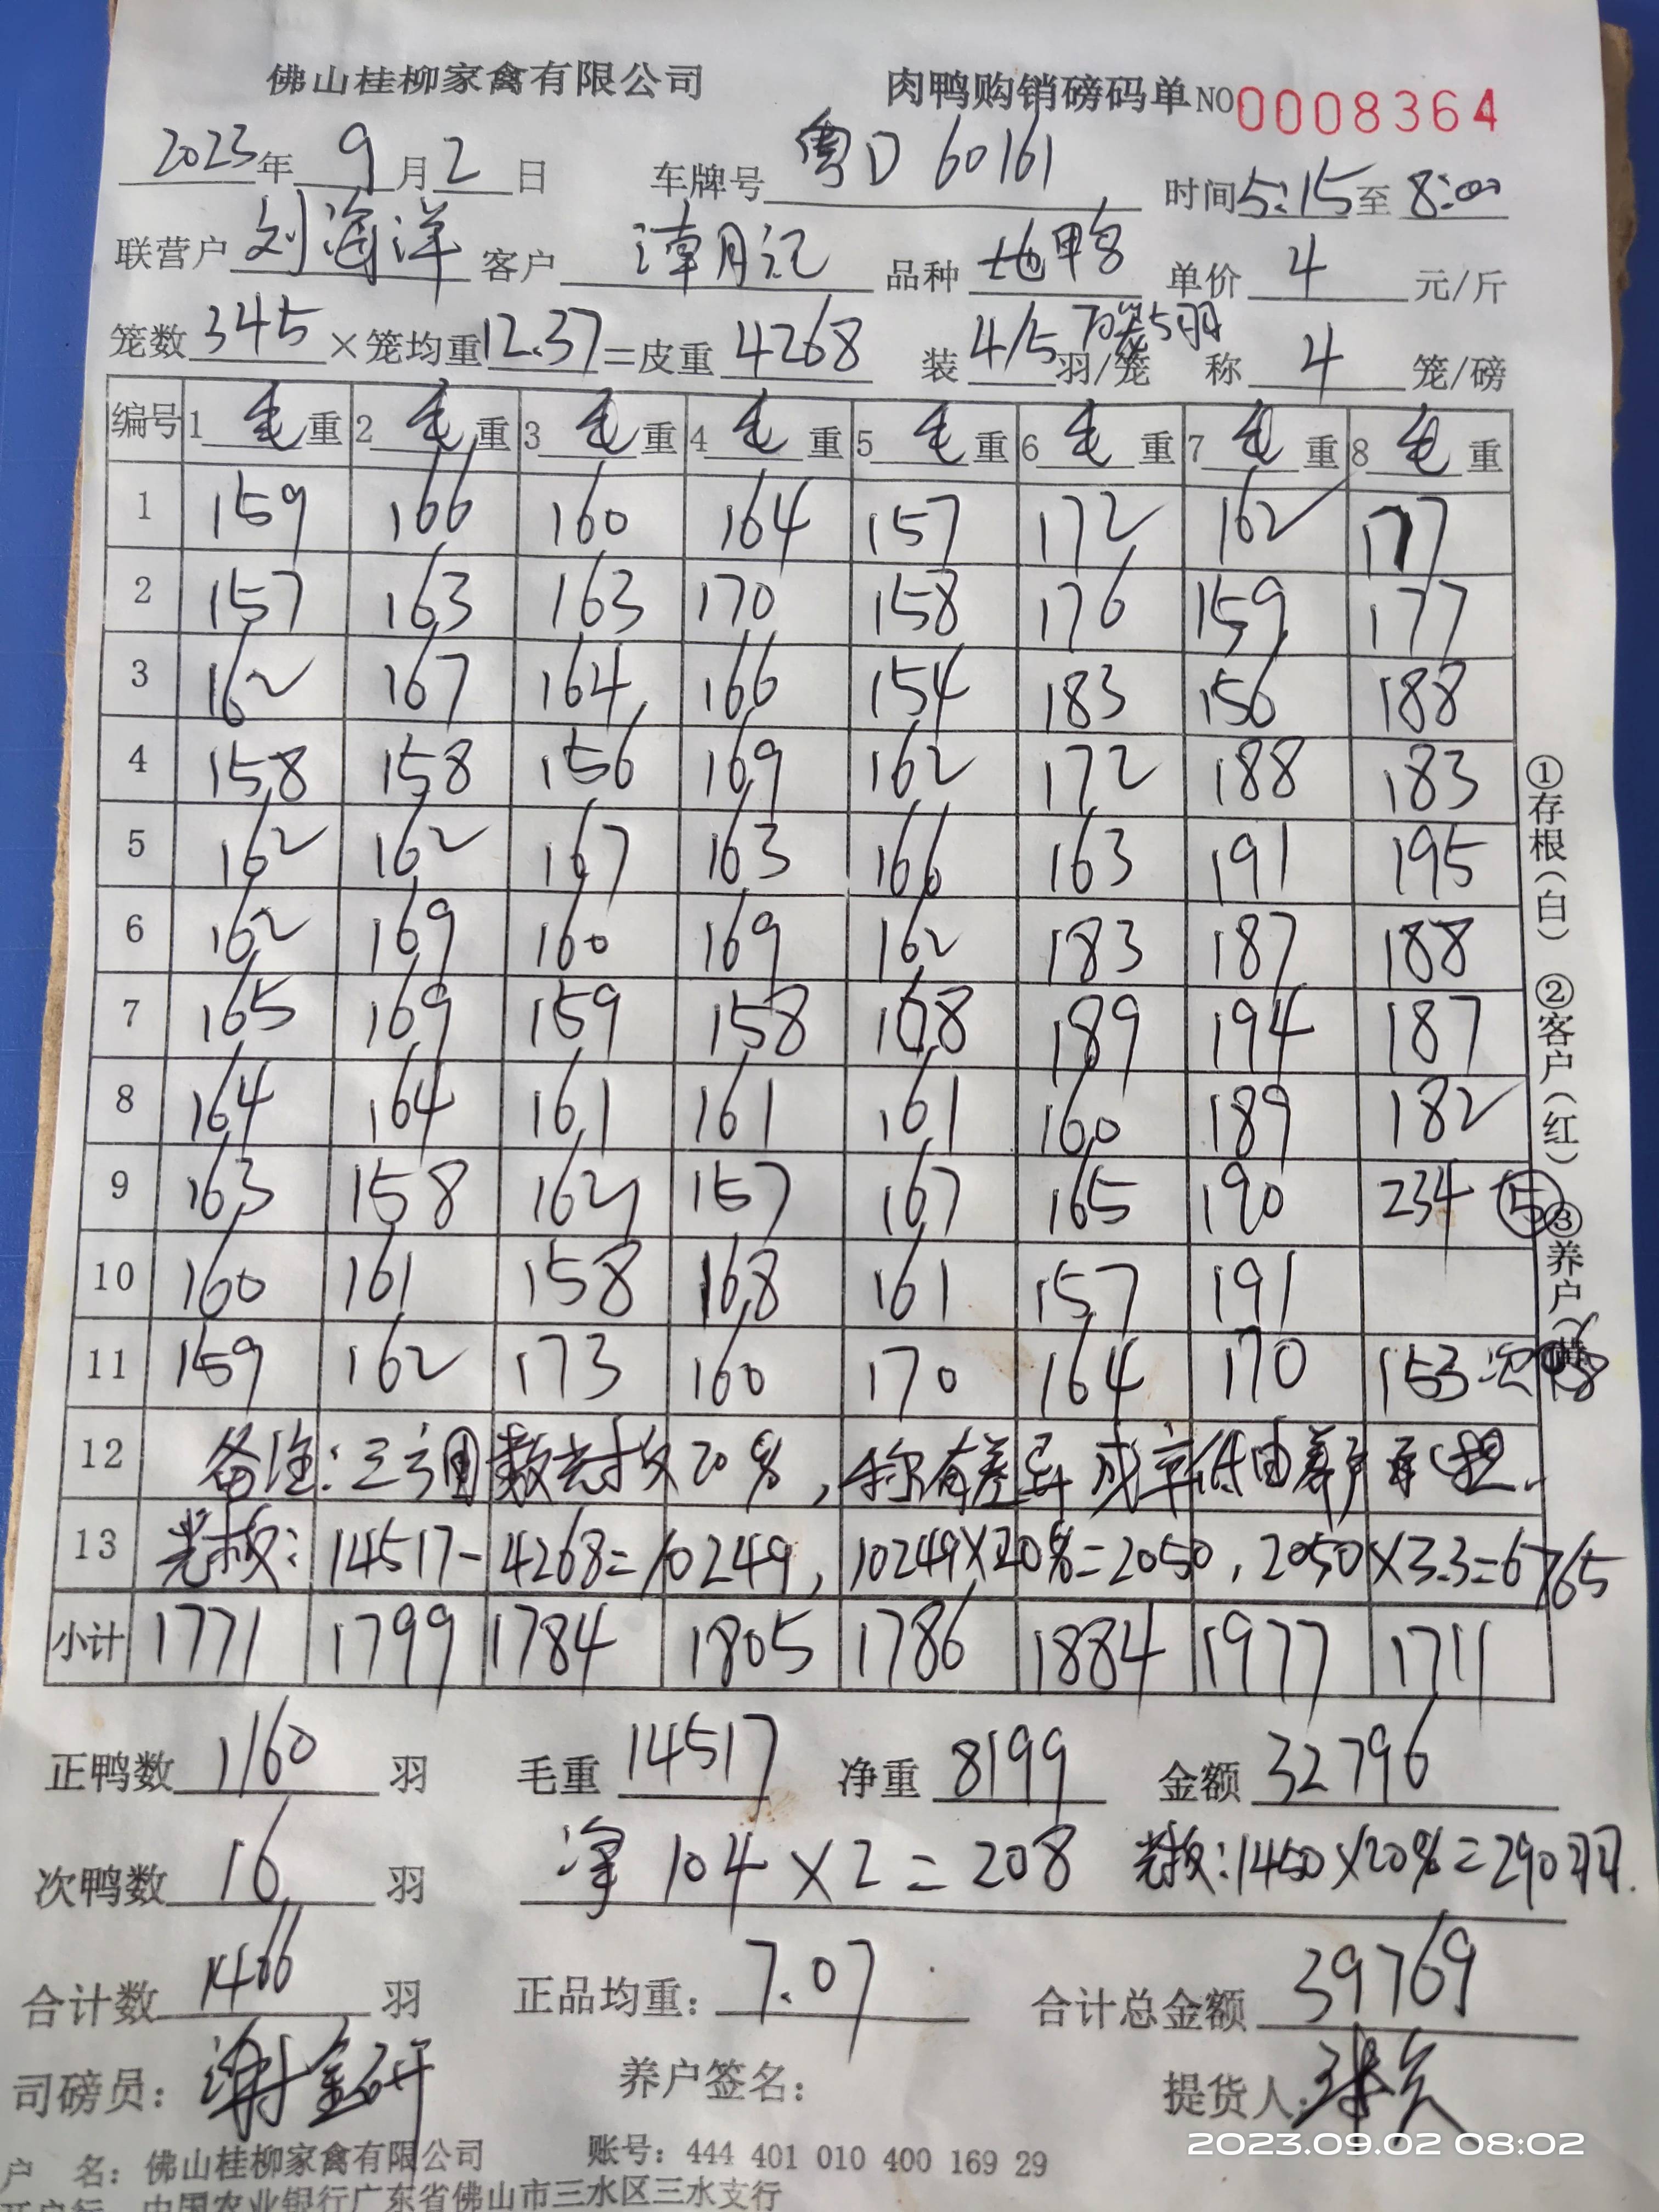 佛山桂柳家禽有限公司 肉鸭购销磅码单 NO 0008364
2023年 9月2日 车牌号 粤D 60161 时间5:15至8:00
联营户 刘海洋 客户 潭月记 品种 土也鸭 单价 4 元/斤
笼数 345 ×笼均重 12.37 =皮重 4268 装 4/5 羽/笼 称 4 笼/磅
编号 1 毛 重 2 毛 重 3 毛 重 4 毛 重 5 毛 重 6 毛 重 7 毛 重 8 毛 重
1 159 166 160 164 157 172 162 177
2 157 163 163 170 158 176 159 177
3 162 167 164 166 154 183 156 188
4 158 158 156 169 162 172 188 183
5 162 162 167 163 166 163 191 195
6 162 169 160 169 162 183 187 188
7 165 169 159 158 168 189 194 187
8 164 164 161 161 161 160 189 182
9 163 158 162 157 167 165 190 234 ⑤
10 160 161 158 168 161 157 191
11 159 162 173 160 170 164 170 153 次
12 备注:三方同数光板20%,称有差异,成率低由养户承担.
13 光板: 14517-4268=10249, 10249×20%=2050, 2050×3.3=6765
小计 1771 1799 1784 1805 1786 1884 1977 1711
①存根(白) ②客户(红) ③养户
正鸭数 1160 羽 毛重 14517 净重 8199 金额 32796
次鸭数 16 羽 净 104×2=208 光板:1450×20%=290羽.
合计数 1466 羽 正品均重: 7.07 合计总金额 39769
司磅员: 谢金研 养户签名: 提货人:
2023.09.02 08:02
户 名: 佛山桂柳家禽有限公司 账号: 444 401 010 400 169 29
开户行 中国农业银行广东省佛山市三水区三水支行